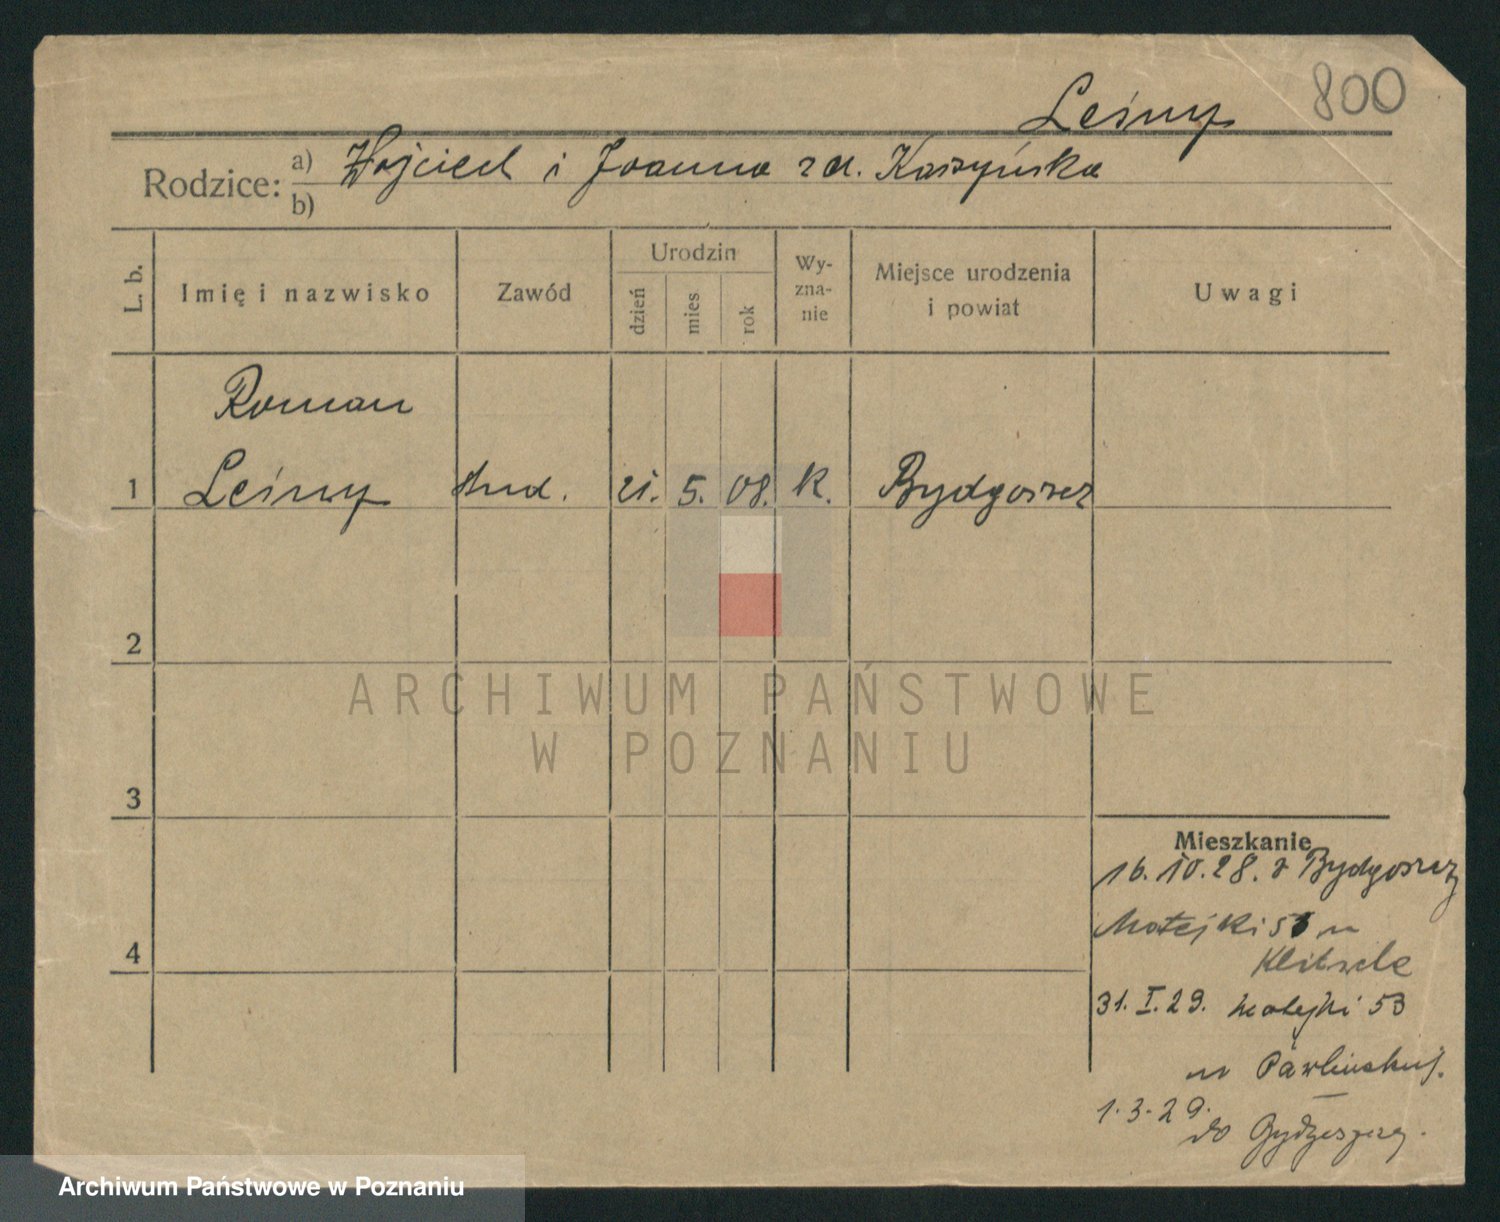 800
Leśny
Rodzice: a) Wojciech i Joanna z d. Kaszyńska
b)
L. b.
Imię i nazwisko
Zawód
Urodzin
dzień
mies
rok
Wy-
zna-
nie
Miejsce urodzenia
i powiat
Uwagi
Roman
1 Leśny stud. 21. 5. 08. K. Bydgoszcz
2
3
4
ARCHIWUM PAŃSTWOWE
W POZNANIU
Mieszkanie
16.10.28. z Bydgoszczy
Matejki 5 u
31.I.29. Matejki 53
u
1.3.29.
do Bydgoszczy.
Archiwum Państwowe w Poznaniu